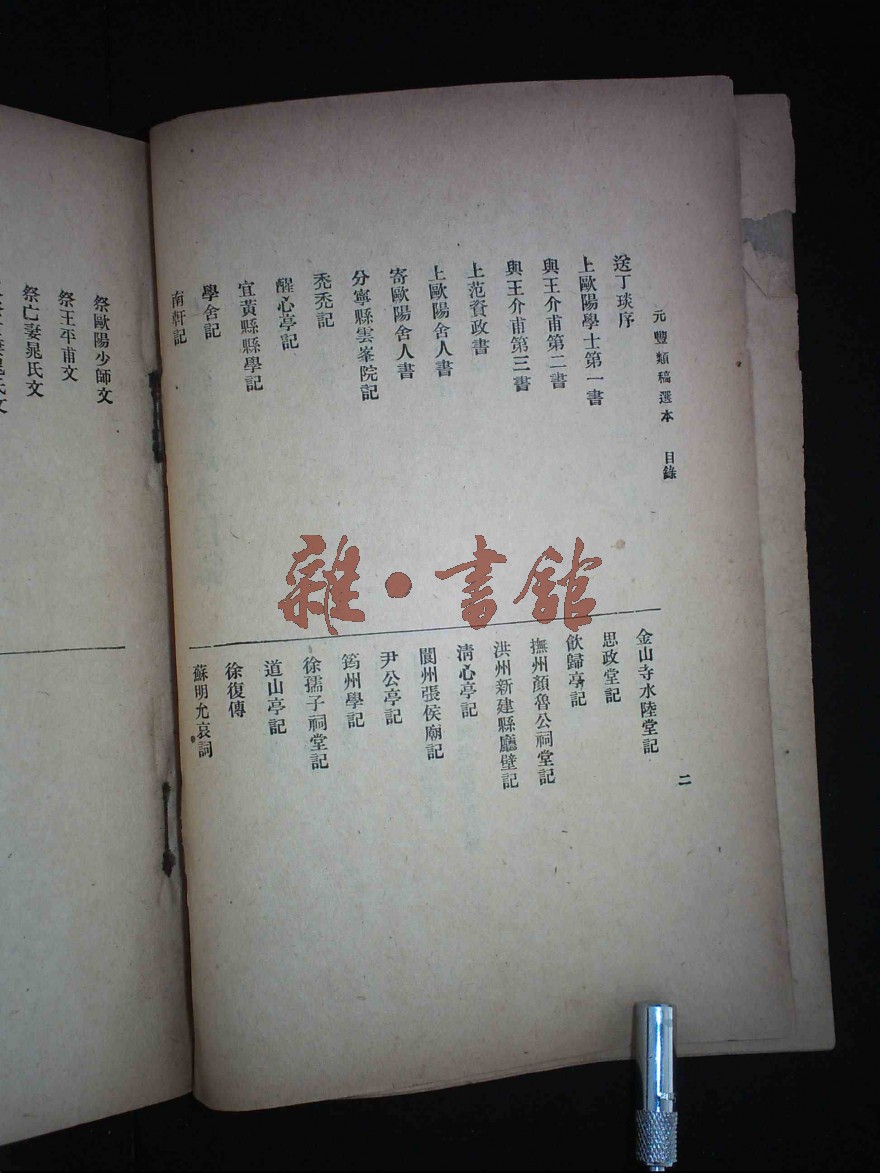 元豐類稿選本 目錄
二
送丁琰序
上歐陽學士第一書
與王介甫第二書
與王介甫第三書
上范資政書
上歐陽舍人書
寄歐陽舍人書
分寧縣雲峯院記
禿禿記
醒心亭記
宜黃縣縣學記
學舍記
南軒記
金山寺水陸堂記
思政堂記
飲歸亭記
撫州顏魯公祠堂記
洪州新建縣廳壁記
清心亭記
閬州張侯廟記
尹公亭記
筠州學記
徐孺子祠堂記
道山亭記
徐復傳
蘇明允哀詞
祭歐陽少師文
祭王平甫文
祭亡妻晁氏文
雜·書館